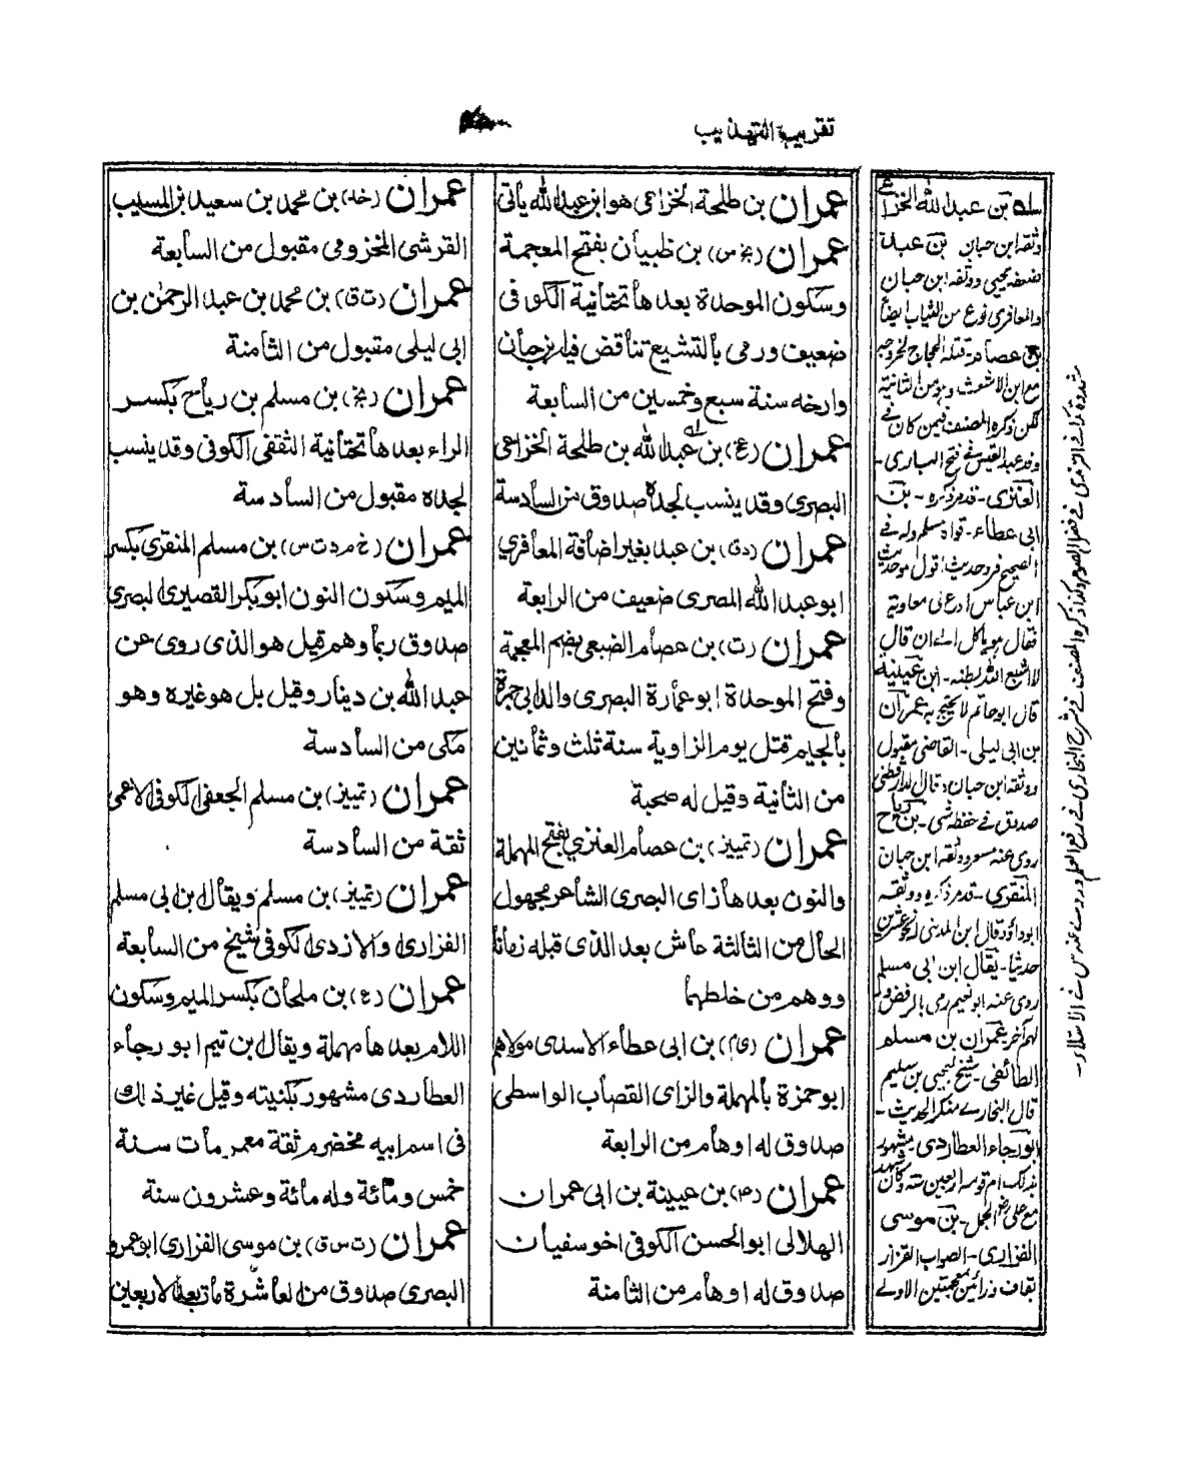 تقريب التهذيب
عمران بن طلحة الخزاعى هو ابن عبد الله يأتى
عمران (بخ س) بن ظبيان بفتح المعجمة
وسكون الموحدة بعدها تحتانية الكوفى
ضعيف ورمى بالتشيع تناقض فيه ابن حبان
وارخه سنة سبع وخمسين من السابعة
عمران (ع) بن عبد الله بن طلحة الخزاعى
البصرى وقد ينسب لجده صدوق من السادسة
عمران (دق) بن عبد بغير اضافة المعافري
ابو عبد الله المصرى ضعيف من الرابعة
عمران (ت) بن عصام الضبعى بضم المعجمة
وفتح الموحدة ابو عمارة البصرى والد ابى جمرة
بالجيم قتل يوم الزاوية سنة ثلث وثمانين
من الثانية وقيل له صحبة
عمران (تمييز) بن عصام العنزي بفتح المهملة
والنون بعدها زاى البصرى الشاعر مجهول
الحال من الثالثة عاش بعد الذى قبله زمانا
ووهم من خلطهما
عمران بن ابى عطاء الاسدى مولاهم
ابو حمزة بالمهملة والزاى القصاب الواسطى
صدوق له اوهام من الرابعة
عمران بن عيينة بن ابى عمران
الهلالى ابو الحسن الكوفى اخو سفيان
صدوق له اوهام من الثامنة
عمران بن محمد بن سعيد بن المسيب
القرشى المخزومى مقبول من السابعة
عمران (ت ق) بن محمد بن عبد الرحمن بن
ابى ليلى مقبول من الثامنة
عمران (بخ) بن مسلم بن رياح بكسر
الراء بعدها تحتانية الثقفى الكوفى وقد ينسب
لجده مقبول من السادسة
عمران (خ م د ت س) بن مسلم المنقرى بكسر
الميم وسكون النون ابو بكر القصير البصرى
صدوق ربما وهم قيل هو الذى روى عن
عبد الله بن دينار وقيل بل هو غيره وهو
مكى من السادسة
عمران (تمييز) بن مسلم الجعفى الكوفى الاعمى
ثقة من السادسة
عمران (تمييز) بن مسلم ويقال ابن ابى مسلم
الفزارى والازدى الكوفى شيخ من السابعة
عمران (ع) بن ملحان بكسر الميم وسكون
اللام بعدها مهملة ويقال ابن تيم ابو رجاء
العطاردى مشهور بكنيته وقيل غير ذلك
فى اسم ابيه مخضرم ثقة معمر مات سنة
خمس ومائة وله مائة وعشرون سنة
عمران (ت س ق) بن موسى القزارى ابو عمرو
البصرى صدوق من العاشرة مات بعد الاربعين
بن عبد الله الخزاعى
وثقه ابن حبان بن عبد
ضعفه يحيى ووثقه ابن حبان
والمعافرى نوع من الثياب ايضا
عصام قتله الحجاج لخروجه
مع ابن الاشعث وهو من الثانية
لكن ذكره المصنف فيمن كان فى
وفد عبد القيس فى فتح البارى -
العنزى - قد مر ذكره - بن
ابى عطاء - قواه مسلم وله فى
الصحيح فرد حديث اقول هو حديث
ابن عباس ادع لى معاوية
فقال هو ياكل الى ان قال
لا اشبع الله بطنه - ابن عيينة
قال ابو حاتم لا يحتج به عمران
بن ابى ليلى - القاضى مقبول
وثقه ابن حبان وقال الدارقطنى
صدوق فى حفظه شى - بن رياح
روى عنه مسعر ووثقه ابن حبان
المنقرى - قد مر ذكره ووثقه
ابو داود قال ابن المدينى له نحو عشرين
حديثا - يقال ابن ابى مسلم
روى عنه ابو نعيم رمى بالرفض و
لهم آخر عمران بن مسلم
الطائفى - شيخ ليحيى بن سليم
قال البخارى منكر الحديث -
ابو رجاء العطاردى - مشهور
ام قومه اربعين سنة وكان
مع على الجمل - بن موسى
الفزارى - الصواب القزاز
بقاف وزائين معجمتين الاولى